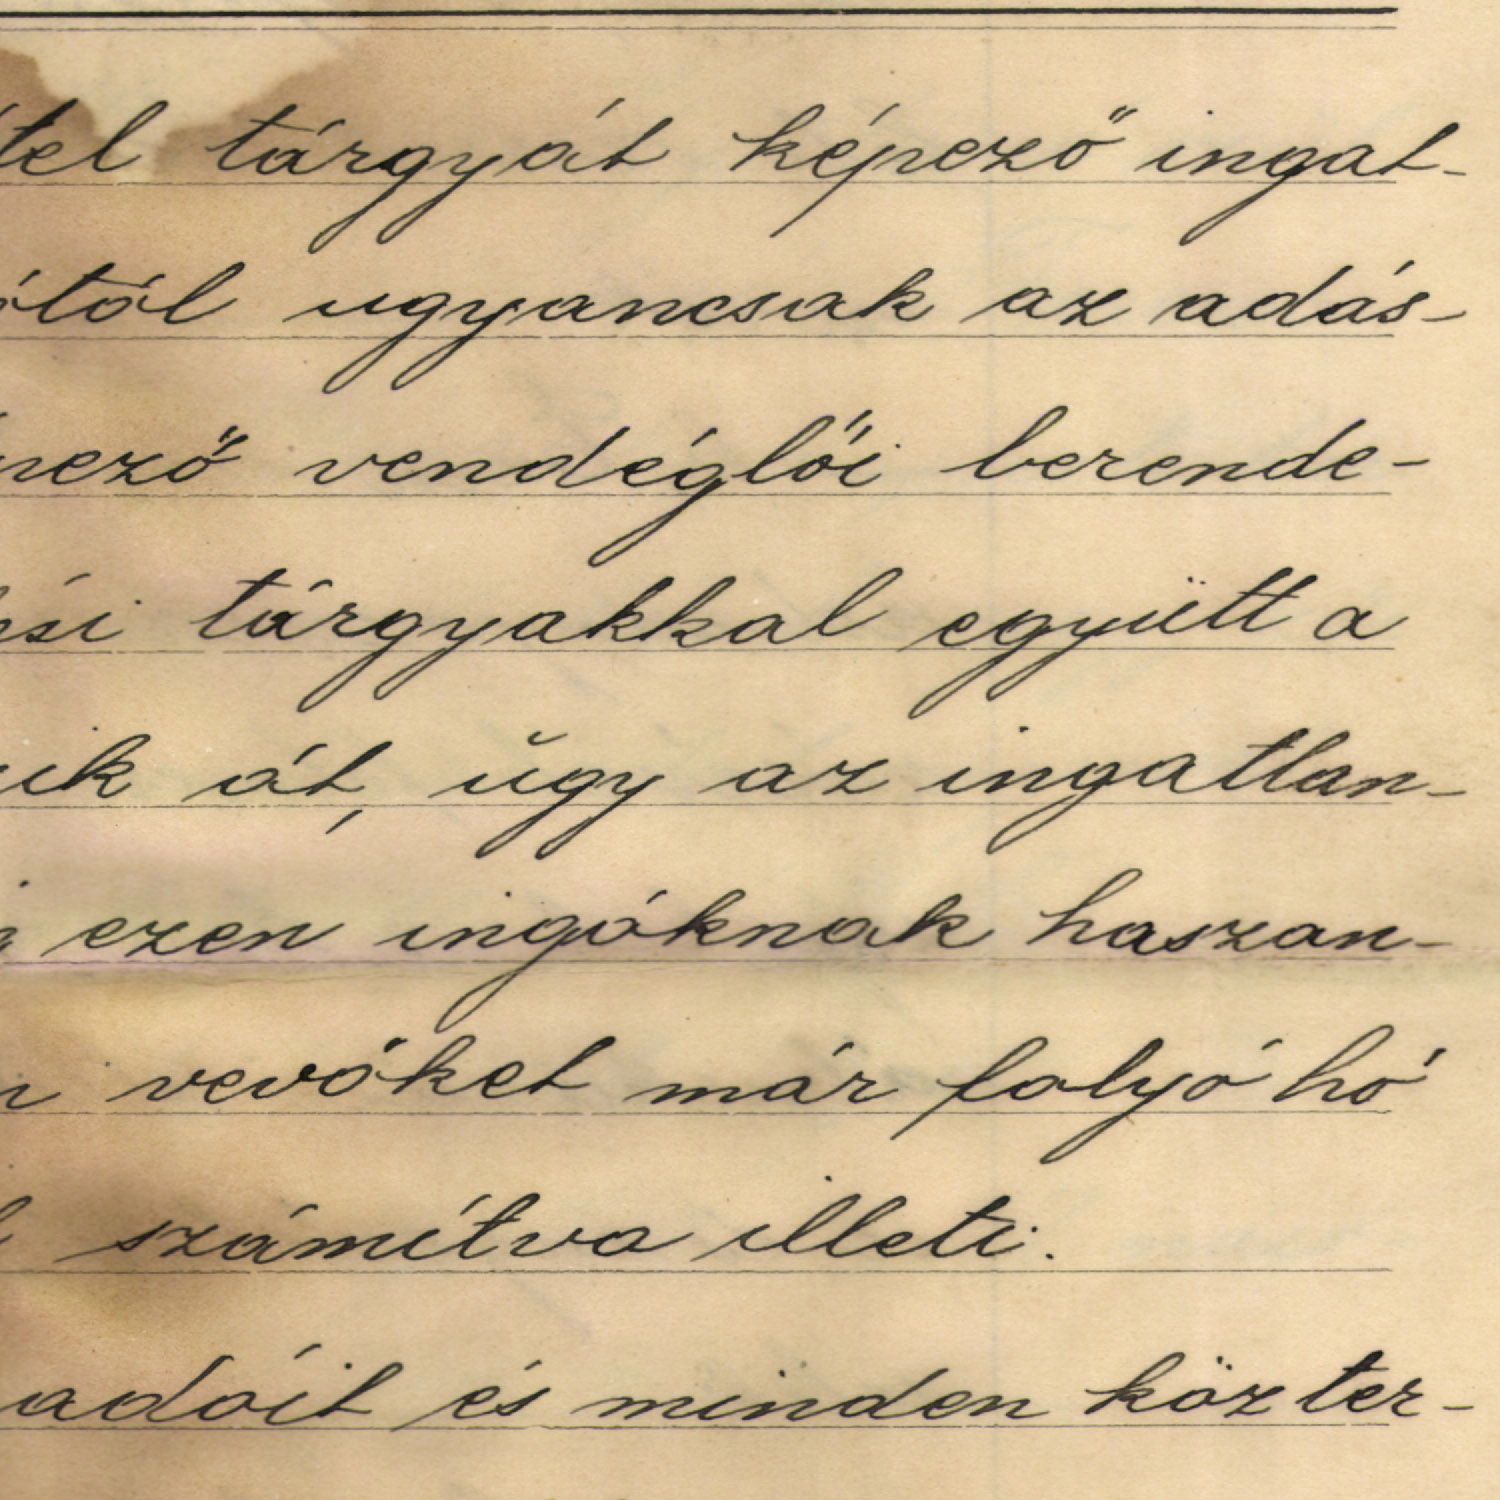 étel tárgyát képező ingat-
ától ugyancsak az adás-
pező vendéglői berende-
ési tárgyakkal együtt a
nik át, úgy az ingatlan-
ezen ingóknak haszan-
vevőket már folyó hó
számítva illeti.
adóit és minden közter-